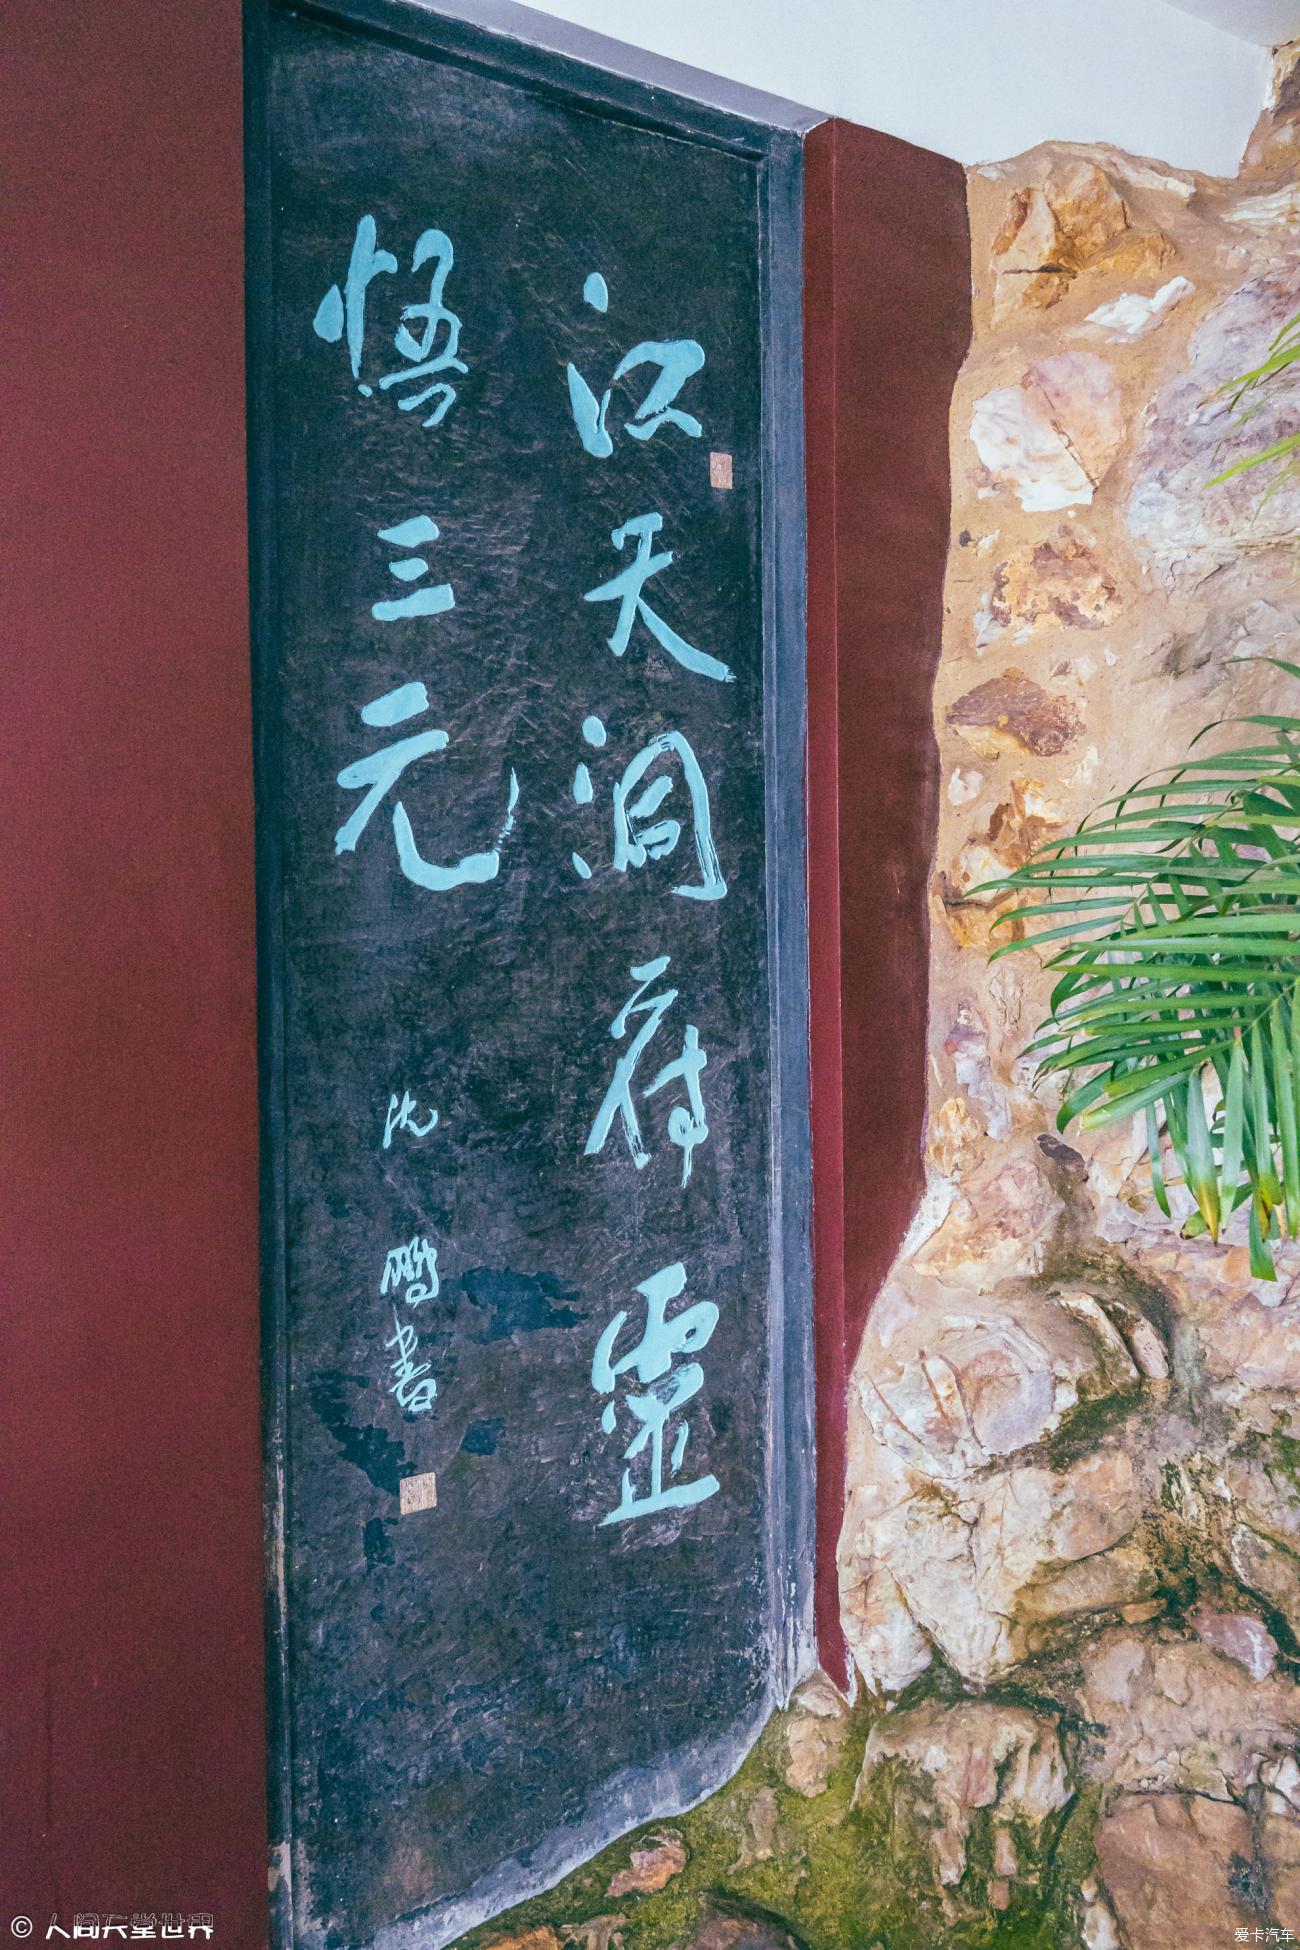 江天洞府灵
悟三元
沈鹏书
© 人间天堂世界
爱卡汽车